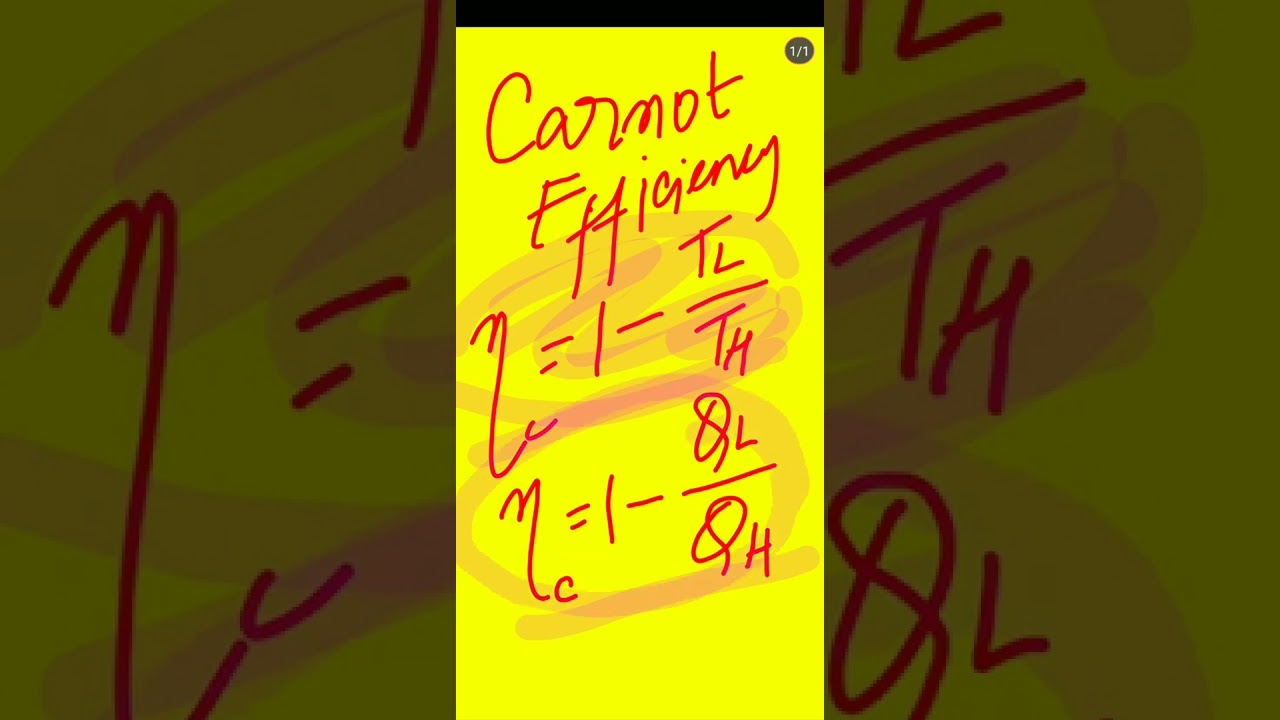 1/1
Carnot
Efficiency
η_c = 1 - T_L / T_H
η_c = 1 - Q_L / Q_H